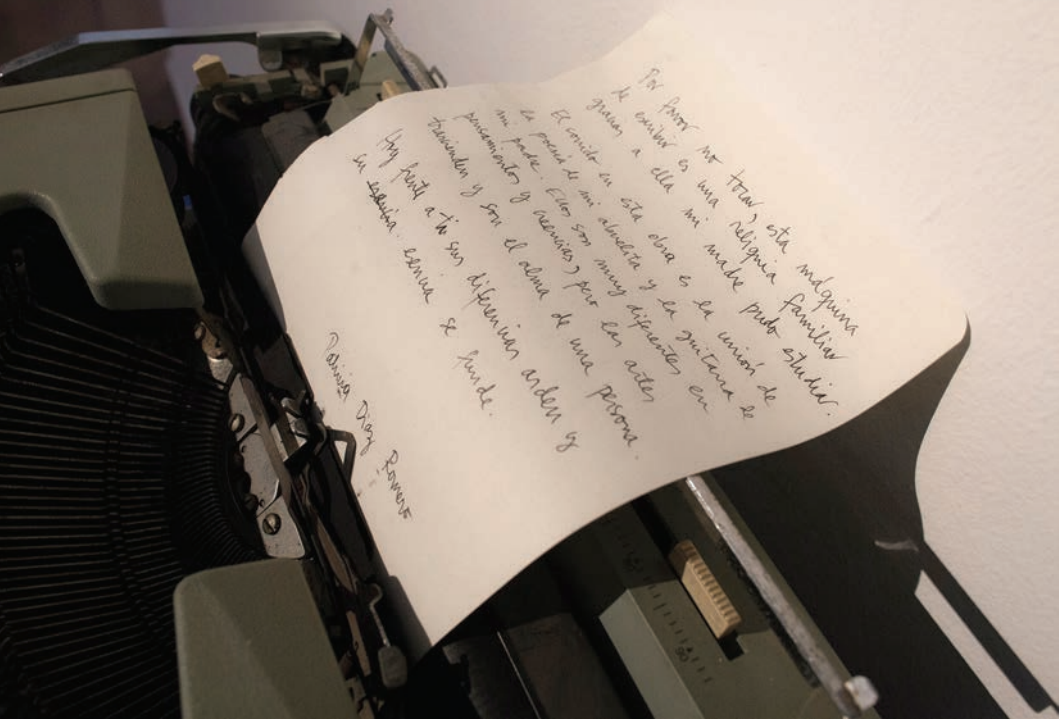 Por favor no tocar, esta máquina
de escribir es una reliquia familiar
gracias a ella mi madre pudo estudiar.
El sonido en esta obra es la unión de
la poesía de mi abuelita y la guitarra de
mi padre. Ellos son muy diferentes en
pensamientos y creencias, pero las artes
trascienden y son el alma de una persona.
Hoy frente a tu sus diferencias arden y
su esencia se funde.
Diaz Romero
90